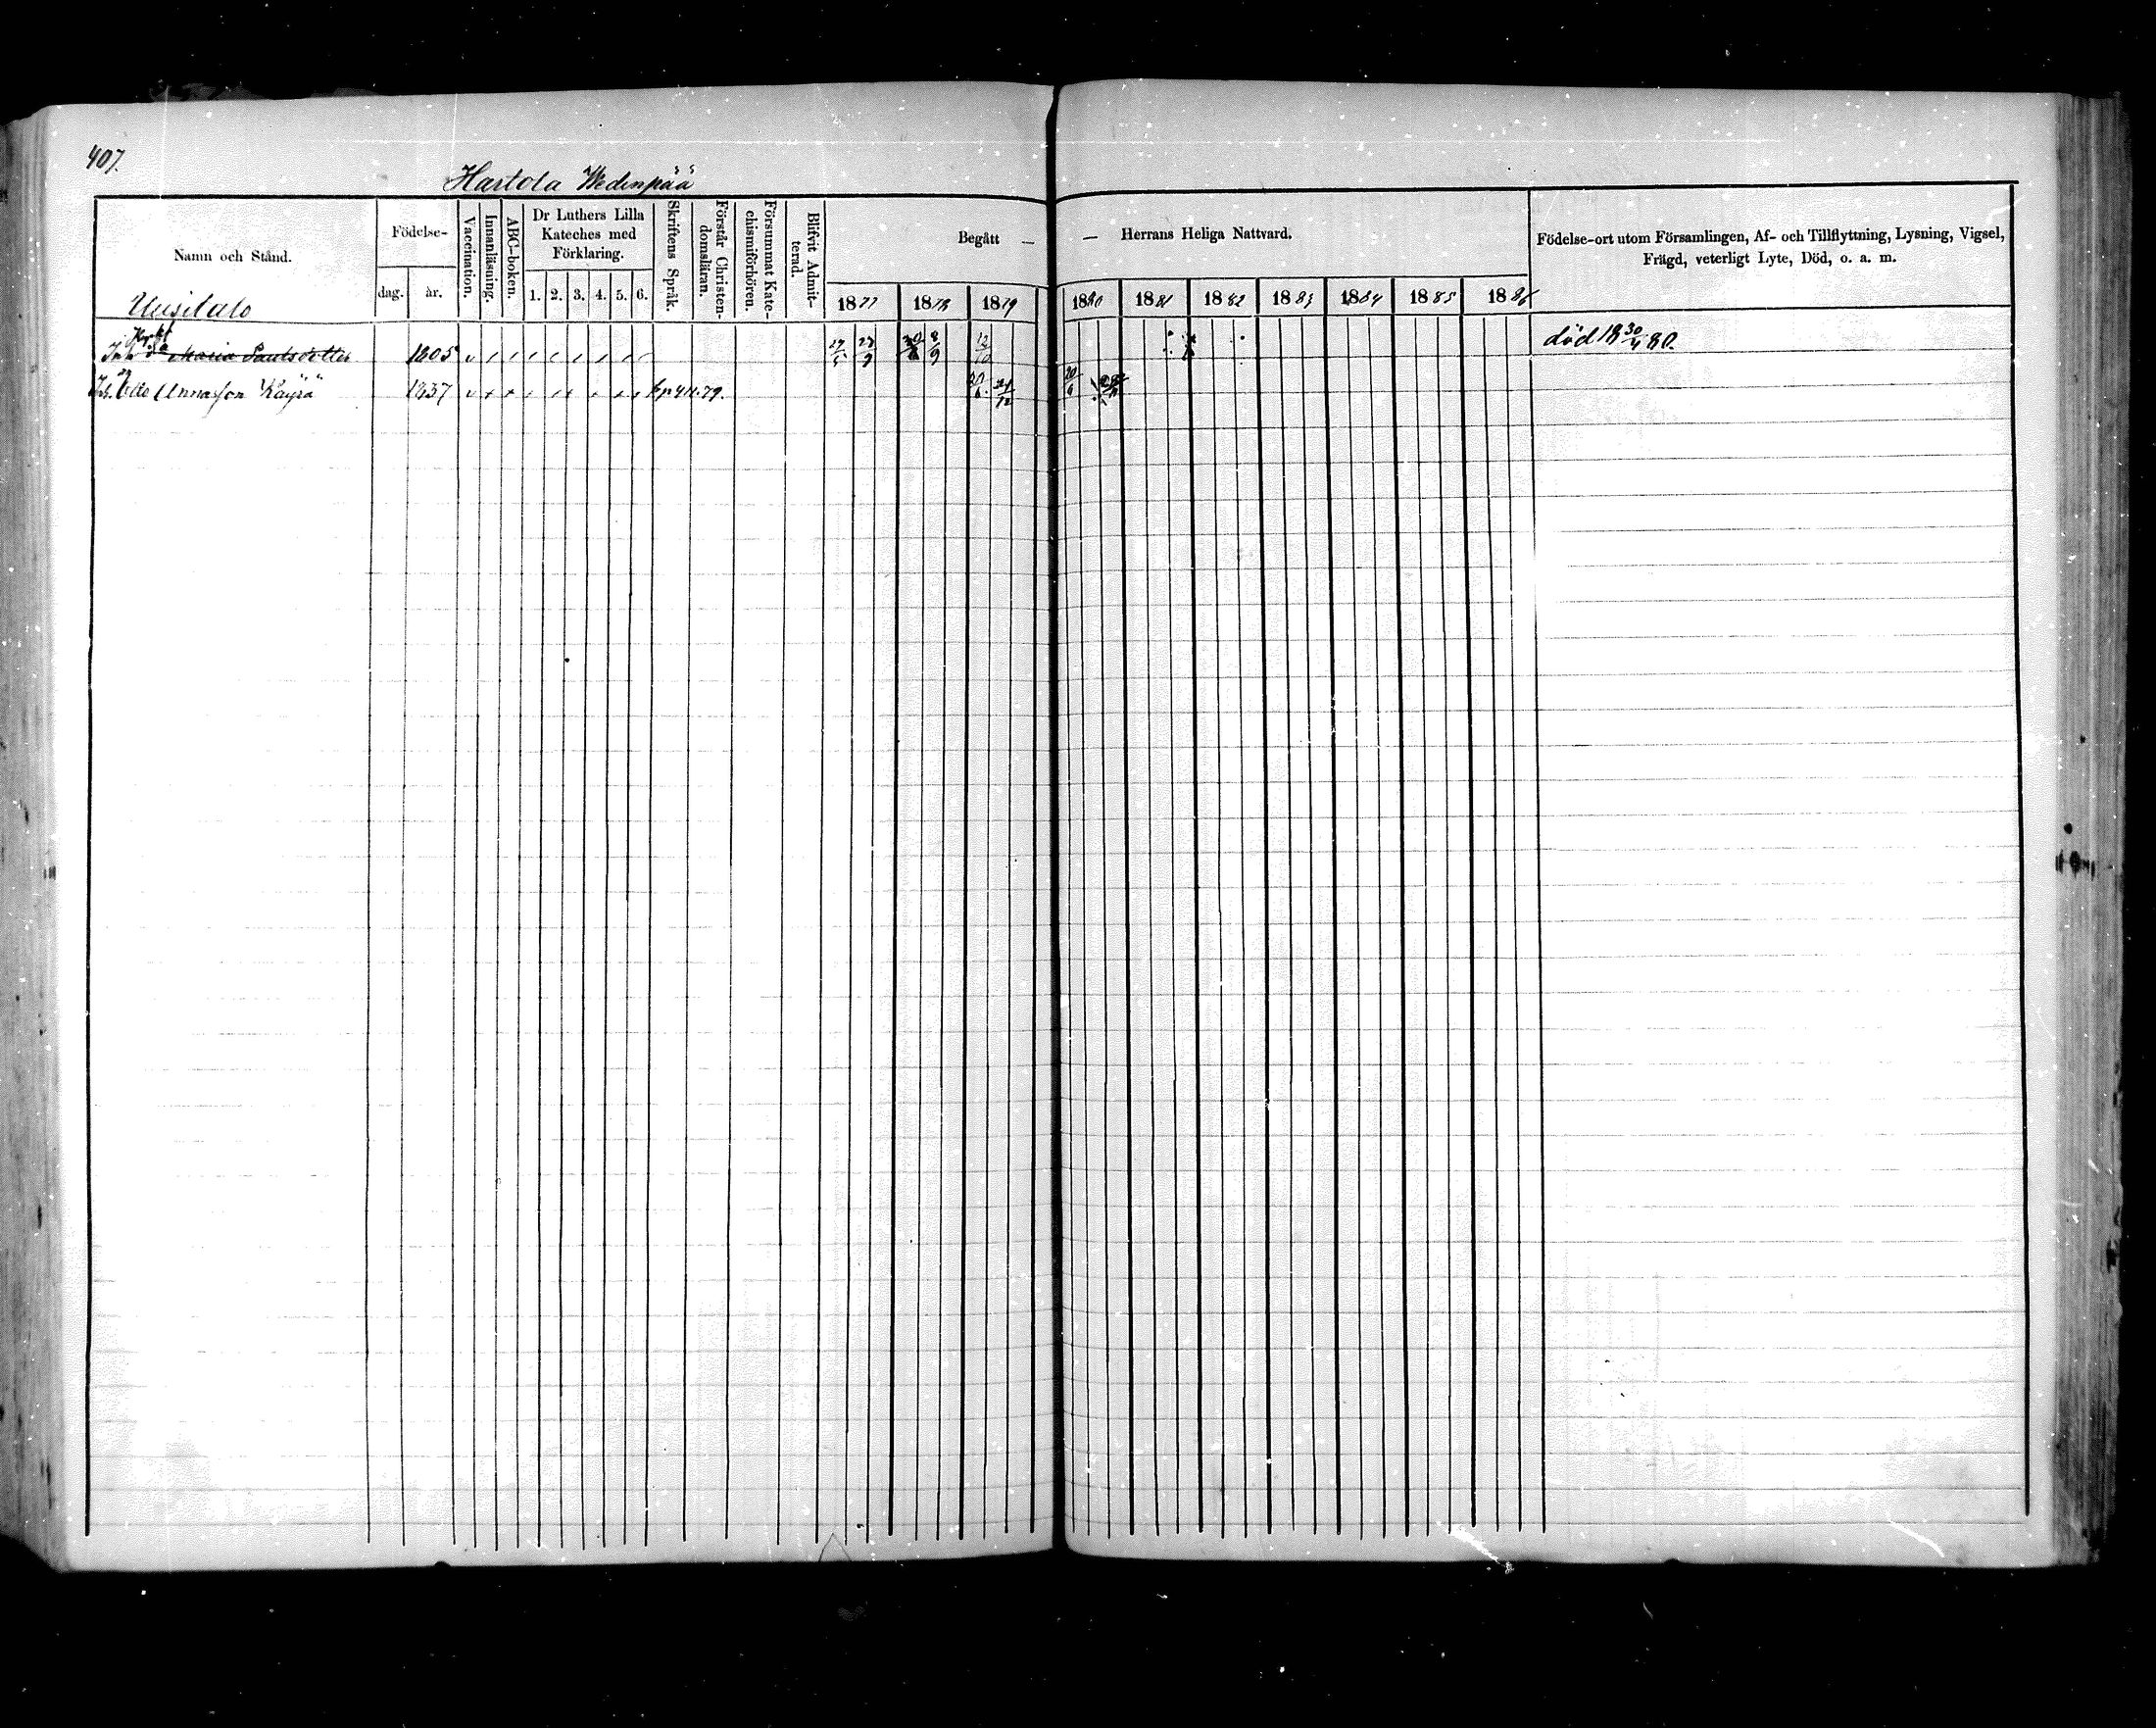 407.
Hartola Wedenpää
Namn och Stånd.
Födelse-
dag. år.
Vaccination.
Innanläsning.
ABC-boken.
Dr Luthers Lilla
Kateches med
Förklaring.
1. 2. 3. 4. 5. 6.
Skriftens Språk.
Förstår Christen-
domsläran.
Försummat Kate-
chismiförhören.
Blifvit Admit-
terad.
Begått — — Herrans Heliga Nattvard.
1877 1878 1879 1880 1881 1882 1883 1884 1885 1886
Födelse-ort utom Församlingen, Af- och Tillflyttning, Lysning, Vigsel,
Frägd, veterligt Lyte, Död, o. a. m.
Uusitalo
Inh Maria Paulsdotter 1805 8/9 12/10 död 18 30/4 80.
Inh. Otto Annasson Käyrä 1837 20/6